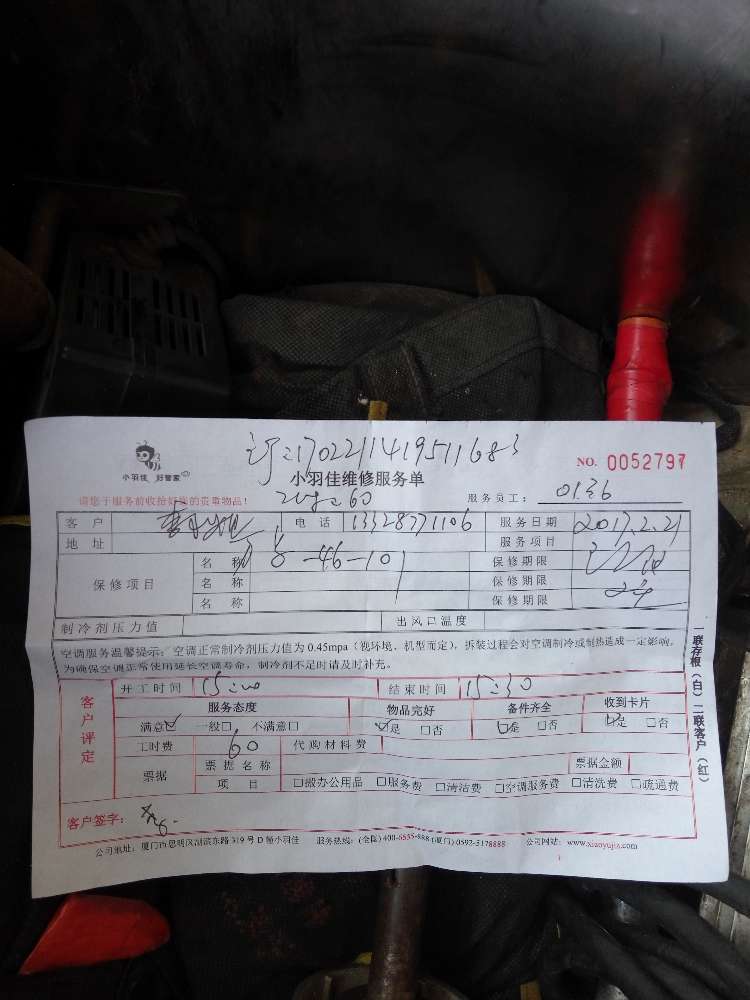 订:1702211419511683
小羽佳 好管家
小羽佳维修服务单
NO. 0052797
请您于服务前收拾好您的贵重物品!
60
服务员工: 0136
客户 电话 13328771106 服务日期 2017.2.21
地址 服务项目
保修项目 名称 8-46-101 保修期限
名称 保修期限
名称 保修期限
制冷剂压力值 出风口温度
空调服务温馨提示: 空调正常制冷剂压力值为 0.45mpa (视环境、机型而定), 拆装过程会对空调制冷或制热造成一定影响。
为确保空调正常使用延长空调寿命, 制冷剂不足时请及时补充。
客户评定
开工时间 15:00 结束时间 15:30
服务态度 物品完好 备件齐全 收到卡片
满意☑ 一般☐ 不满意☐ ☑是 ☐否 ☑是 ☐否 ☑是 ☐否
工时费 60 代购材料费
票据 票据名称 票据金额
项目 ☐搬办公用品 ☐服务费 ☐清洁费 ☐空调服务费 ☐清洗费 ☐疏通费
客户签字:
公司地址: 厦门市思明区湖滨东路 319 号 D 幢小羽佳 服务热线: (全国) 400-6535-888 (厦门) 0592-5178888 公司网站: www.xiaoyujia.com
一联存根(白) 二联客户(红)